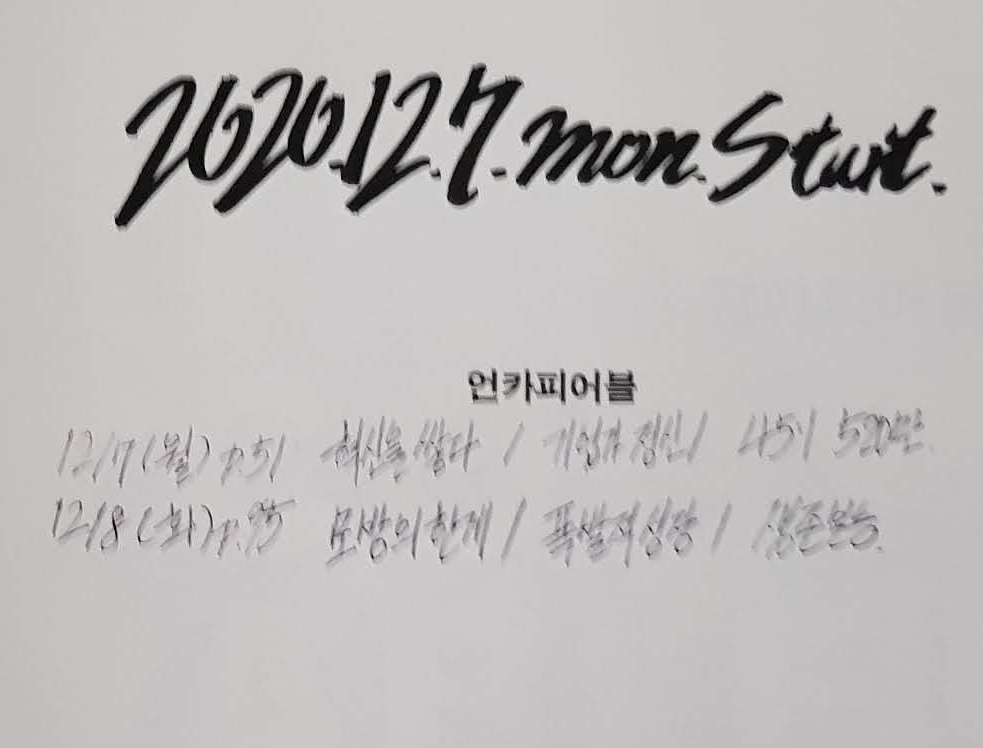 2020.12.7. mon. Start.
언카피어블
12/7 (월) p.51 혁신을 쌓다 / 기업가 정신 / 4시 5분
12/8 (화) p.95 모방의 한계 / 폭발적 성장 / 생존본능.